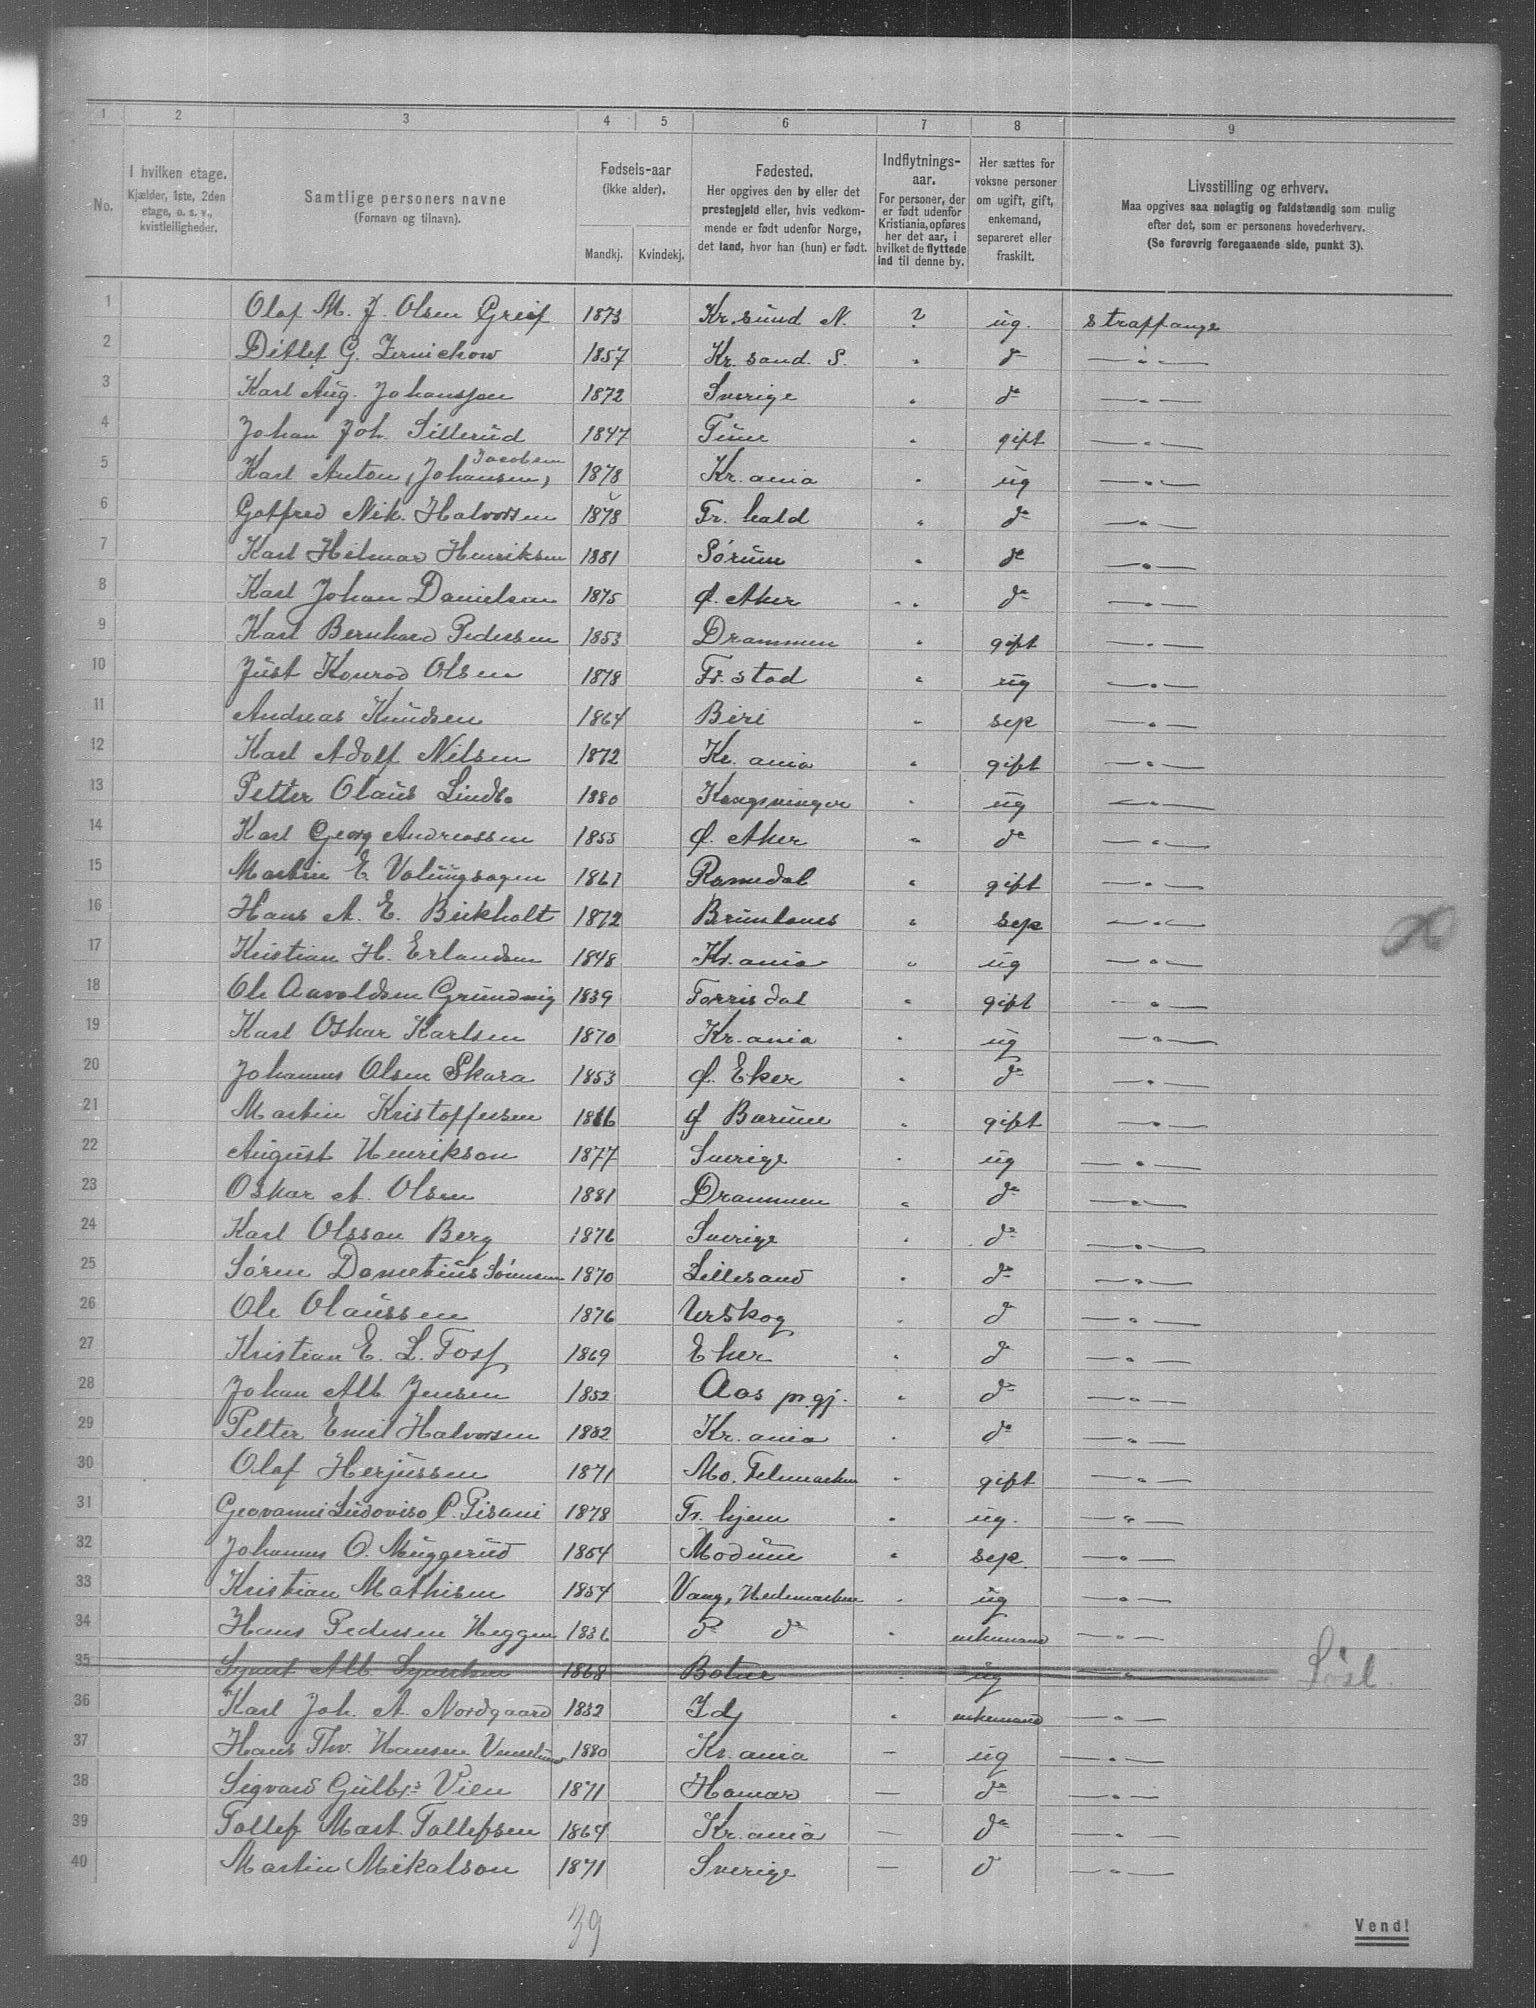 1 2 3 4 5 6 7 8 9
No.
I hvilken etage.
Kjælder, 1ste, 2den
etage, o. s. v.,
kvistleiligheder.
Samtlige personers navne
(Fornavn og tilnavn).
Fødsels-aar
(ikke alder).
Mandkj. Kvindekj.
Fødested.
Her opgives den by eller det
prestegjeld eller, hvis vedkom-
mende er født udenfor Norge,
det land, hvor han (hun) er født.
Indflytnings-
aar.
For personer, der
er født udenfor
Kristiania, opføres
her det aar, i
hvilket de flyttede
ind til denne by.
Her sættes for
voksne personer
om ugift, gift,
enkemand,
separeret eller
fraskilt.
Livsstilling og erhverv.
Maa opgives saa nøiagtig og fuldstændig som mulig
efter det, som er personens hovederhverv.
(Se forøvrig foregaaende side, punkt 3).
1 Olaf M. J. Olsen Greif 1873 Kr.sund. N. ? ug. straffange
2 Ditlef G. 1857 Kr. sand. S. " d — " —
3 Karl Aug. Johanssen 1872 Sverige " do — " —
4 Johan Joh. Sillerud 1847 Tune " gift — " —
Jacobsen
5 Karl Anton (Johansen) 1878 Kr. ania " ug — " —
6 Gotfred Nik. Halvorsen 1878 Fr. hald " do — " —
7 Karl Hilmar Henriksen 1881 Sørum " do — " —
8 Karl Johan Danielsen 1875 Ø. Aker " do — " —
9 Karl Bernhard Pedersen 1853 Drammen " gift — " —
10 Just Konrad Olsen 1878 Fr. stad " ug — " —
11 Andreas Knudsen 1864 Biri " sep — " —
12 Karl Adolf Nilsen 1872 Kr. ania " gift — " —
13 Petter Olaus Lindbo 1880 Kongsvinger " ug — " —
14 Karl Georg Andreassen 1855 Ø. Aker " do — " —
15 Martin E. 1861 Romedal " gift — " —
16 Hans A. E. Birkholt 1872 Brunlanes " sep — " —
17 Kristian H. Erlandsen 1848 Kr. ania " ug — " —
18 Ole Aavoldsen Grundvig 1839 Torrisdal " gift — " —
19 Karl Oskar Karlsen 1870 Kr. ania " ug — " —
20 Johannes Olsen Skara 1853 Ø. Eker " do — " —
21 Martin Kristoffersen Ø Bærum " gift — " —
22 August Henrikson 1877 Sverige " ug — " —
23 Oskar A. Olsen 1881 Drammen " do — " —
24 Karl Olsson Berg 1876 Sverige " do — " —
25 Søren Dometius Sørensen 1870 Lillesand " do — " —
26 Ole Olaussen 1876 Urskog " d — " —
27 Kristian E. L. Foss 1869 Eker " d — " —
28 Johan Alb. Jensen 1852 Aas pr.gj. " do — " —
29 Petter Emil Halvorsen 1882 Kr. ania " do — " —
30 Olaf Herjussen 1871 Mo. Telemarken " gift — " —
31 Geovanni Ludoviso P. Pisani 1878 Tr. hjem " ug. — " —
32 Johannes O. Muggerud 1854 Modum " sep. — " —
33 Kristian Mathisen 1854 Vang, Hedemarken " ug — " —
34 Hans Pedersen Heggen 1836 do do " enkemand — " —
35 Syvert Alb. Syvertsen 1868 Botne " ug — " —
36 Karl Joh. A. Nordgaard 1832 Id " enkemand — " —
37 Hans Thv. Hansen 1880 Kr. ania — ug — " —
38 Sigvard Gulbr. Vien 1871 Hamar — do — " —
39 Tollef Mart. Tollefsen 1864 Kr. ania — do — " —
40 Martin Mikalson 1871 Sverige — d — " —
39
Vend!